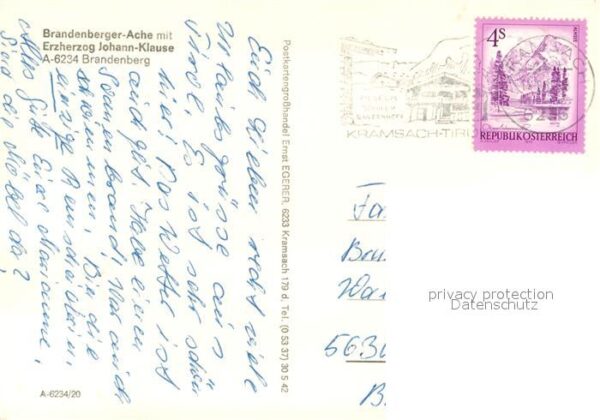 Brandenberger-Ache mit
Erzherzog Johann-Klause
A-6234 Brandenberg
Euch Lieben recht viele
Urlaubsgrüsse aus
Tirol. Es ist sehr schön
hier! Das Wetter ist
auch gut. Habe einen
Sonnenbrand! War auch
schwimmen. Bin die
einzige
Alles Gute Eure Marianne.
Sind die Möbel da?
A-6234/20
Postkartengroßhandel Ernst EGERER, 6233 Kramsach 179 d, Tel. (0 53 37) 30 5 42
KRAMSACH-TIROL
KRAMSACH
4S
REPUBLIK ÖSTERREICH
Fam
Bru
Wa
5630
B
privacy protection
Datenschutz